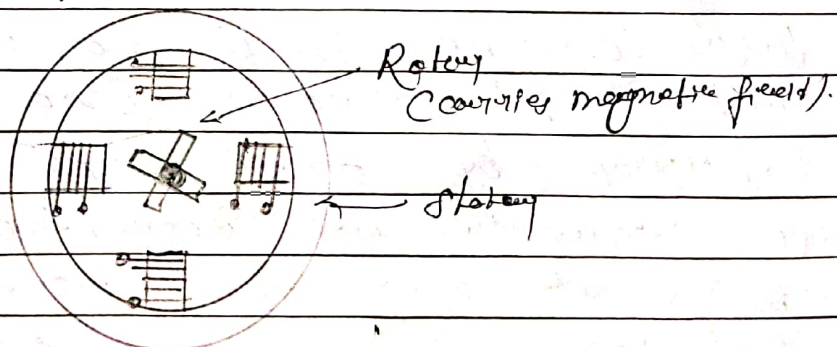 Rotor
(carries magnetic field).
Stator